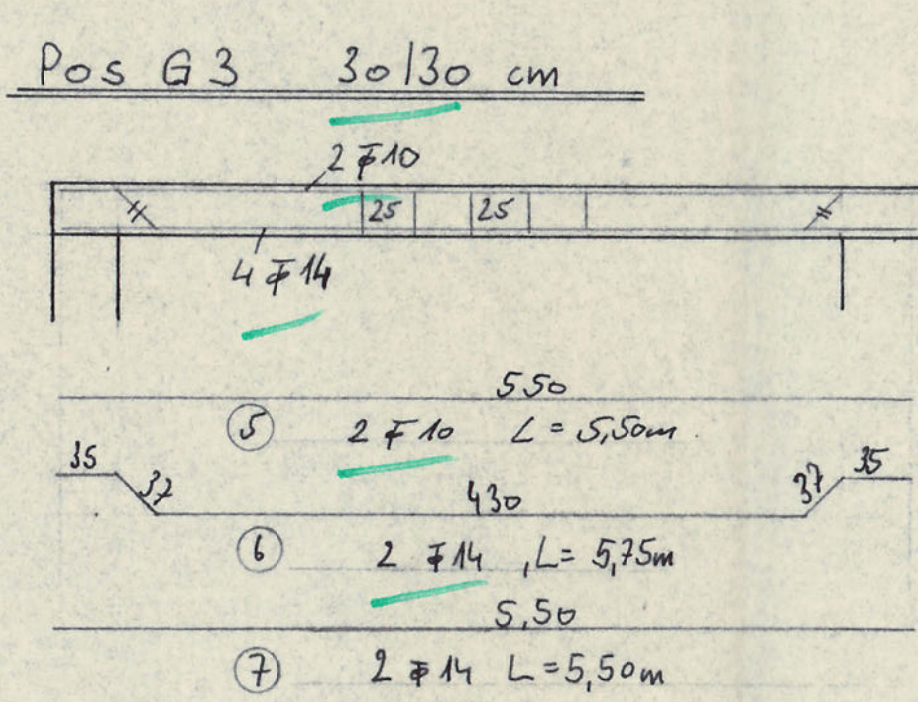 Pos G3 30/30 cm
2 Φ10
25 25
4 Φ14
550
5 2 Φ10 L = 5,50m
35 37 430 37 35
6 2 Φ14 , L = 5,75m
5,50
7 2 Φ14 L = 5,50m